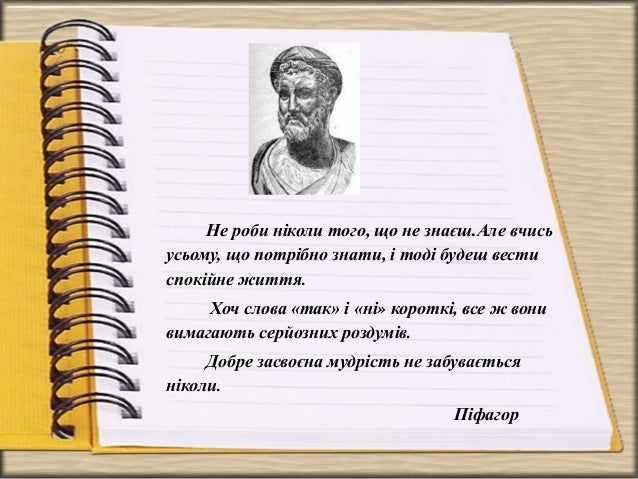 Не роби ніколи того, що не знаєш.Але вчись
усьому, що потрібно знати, і тоді будеш вести
спокійне життя.
Хоч слова «так» і «ні» короткі, все ж вони
вимагають серйозних роздумів.
Добре засвоєна мудрість не забувається
ніколи.
Піфагор